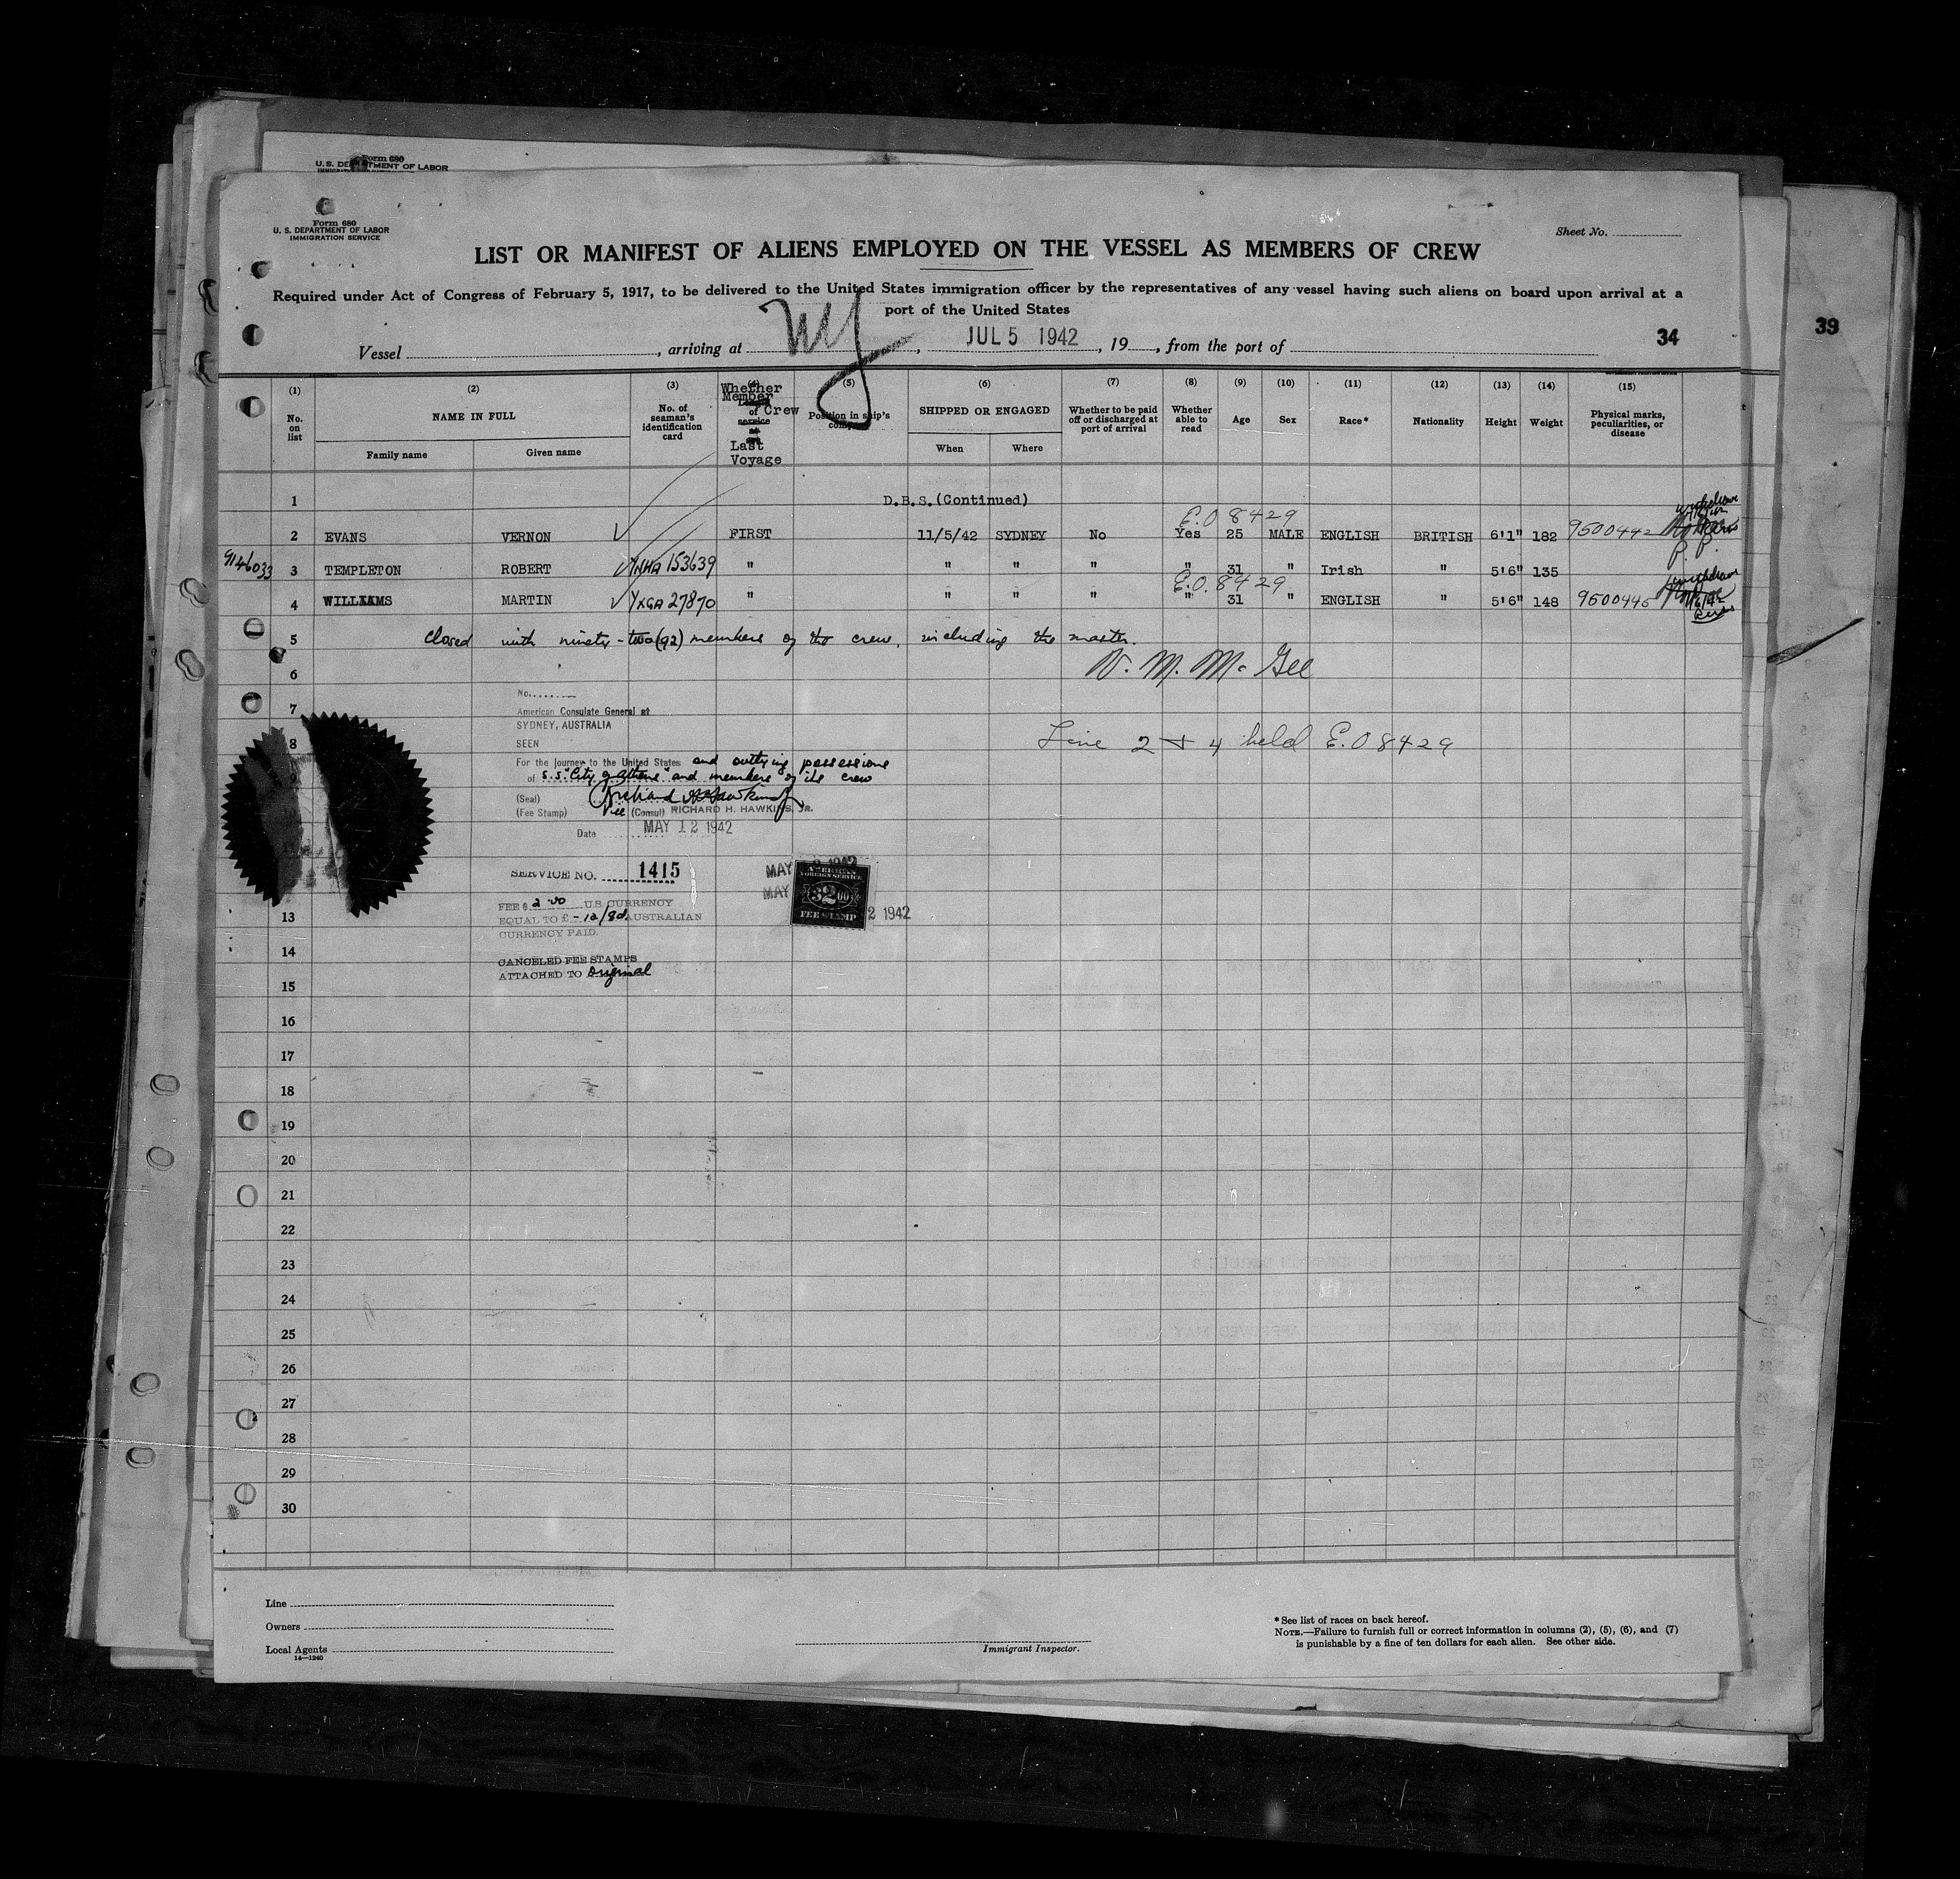 Form 680
U. S. DEPARTMENT OF LABOR
Form 680
U. S. DEPARTMENT OF LABOR
IMMIGRATION SERVICE
Sheet No.
LIST OR MANIFEST OF ALIENS EMPLOYED ON THE VESSEL AS MEMBERS OF CREW
Required under Act of Congress of February 5, 1917, to be delivered to the United States immigration officer by the representatives of any vessel having such aliens on board upon arrival at a
port of the United States
Vessel , arriving at NY , JUL 5 1942 , 19 , from the port of
34
39
(1) (2) (3) (4) (5) (6) (7) (8) (9) (10) (11) (12) (13) (14) (15)
No. on list
NAME IN FULL
Family name Given name
No. of seaman's identification card
Whether Member of Crew Last Voyage
Position in ship's company
SHIPPED OR ENGAGED
When Where
Whether to be paid off or discharged at port of arrival
Whether able to read
Age Sex Race* Nationality Height Weight
Physical marks, peculiarities, or disease
1 D.B.S.(Continued)
E.O 8429
2 EVANS VERNON FIRST 11/5/42 SYDNEY No Yes 25 MALE ENGLISH BRITISH 6'1" 182 9500442
P.P.
9146033 3 TEMPLETON ROBERT 153639 " " " " " 31 " Irish " 5'6" 135
E.O. 8429
4 WILLIAMS MARTIN 27870 " " " " " 31 " ENGLISH " 5'6" 148 9500445
5 Closed with ninety-two (92) members of the crew, including the master.
6 W. M. McGee
7
No.
American Consulate General at
SYDNEY, AUSTRALIA
8 SEEN
Line 2 + 4 held E.O 8429
For the journey to the United States and outlying possessions
of S.S. "City of Athens" and members of its crew
(Seal) Richard H Hawkins Jr
(Fee Stamp) Vice (Consul) RICHARD H. HAWKINS, JR.
Date MAY 12 1942
SERVICE NO. 1415
MAY 1942
MAY 2 1942
AMERICAN
FOREIGN SERVICE
$2.00
FEE STAMP
FEE $ 2.00 U.S. CURRENCY
EQUAL TO £ -12/8d. AUSTRALIAN
CURRENCY PAID.
CANCELED FEE STAMPS
ATTACHED TO original
13
14
15
16
17
18
19
20
21
22
23
24
25
26
27
28
29
30
Line
Owners
Local Agents
14—1240
Immigrant Inspector.
*See list of races on back hereof.
NOTE.—Failure to furnish full or correct information in columns (2), (5), (6), and (7)
is punishable by a fine of ten dollars for each alien. See other side.